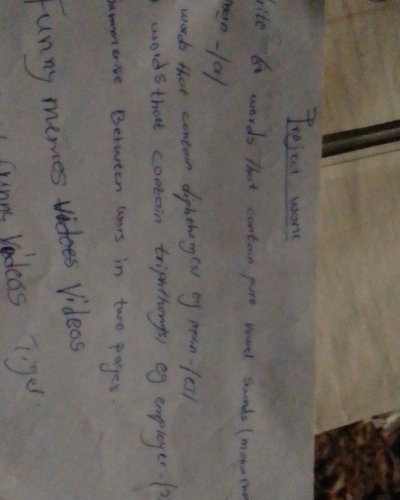 Project work
write 60 words that contain pure vowel sounds (mono
words that contain diphthongs eg mean-/eɪ/
words that contain triphthongs eg employer-
summarise Between wars in two pages.
Funny memes Videos Videos
funny Videos Tiger